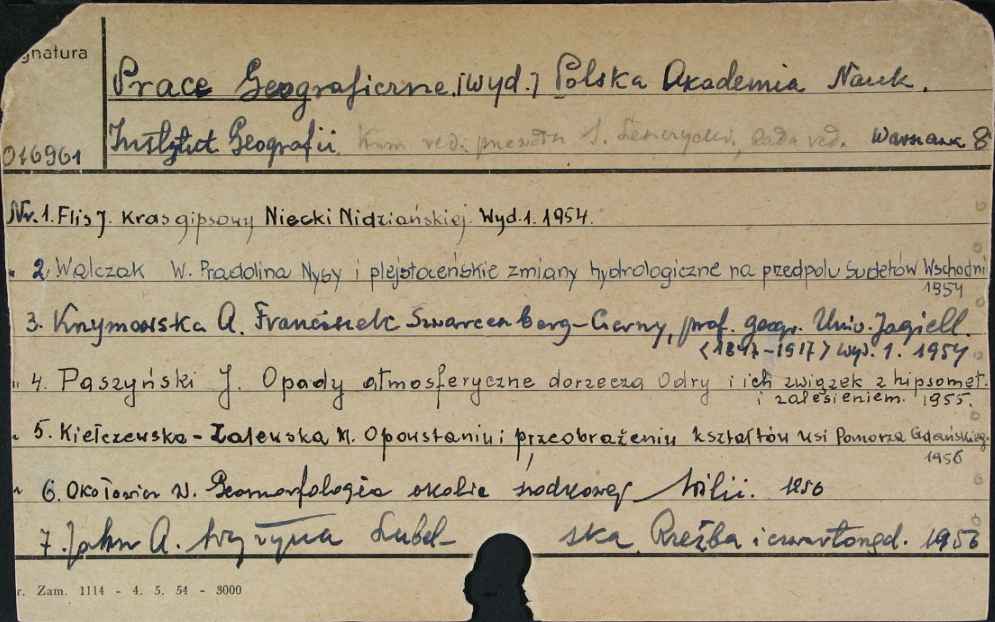 gnatura
Prace Geograficzne. [Wyd.] Polska Akademia Nauk.
016961
Instytut Geografii. Kom red. przewodn. S. Leszczycki, Rada red. Warszawa 8°
Nr. 1. Flis J. Kras gipsowy Niecki Nidziańskiej. Wyd. 1. 1954.
" 2. Walczak W. Pradolina Nysy i plejstoceńskie zmiany hydrologiczne na przedpolu Sudetów Wschodni
1954
3. Krzymowska A. Franciszek Szwarcenberg-Czerny, prof. geogr. Univ. Jagiell.
<1847-1917> Wyd. 1. 1954
" 4. Paszyński J. Opady atmosferyczne dorzecza Odry i ich związek z hipsomet.
i zalesieniem. 1955.
" 5. Kiełczewska-Zaleska M. O powstaniu i przeobrażeniu kształtów wsi Pomorza Gdańskieg.
1956
" 6. Okołowicz W. Geomorfologia okolic środkowej Wilii. 1956
7. Jahn A. Wyżyna Lubel- ska. Rzeźba i czwartorzęd. 1956
r. Zam. 1114 - 4. 5. 54 - 3000